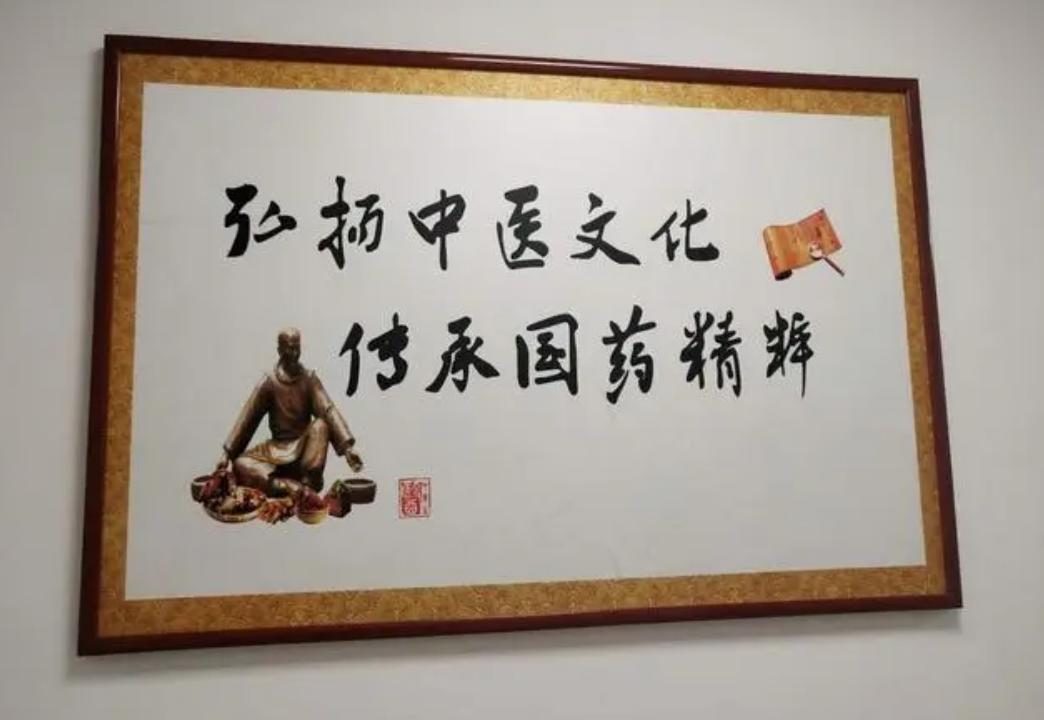 弘扬中医文化
传承国药精粹